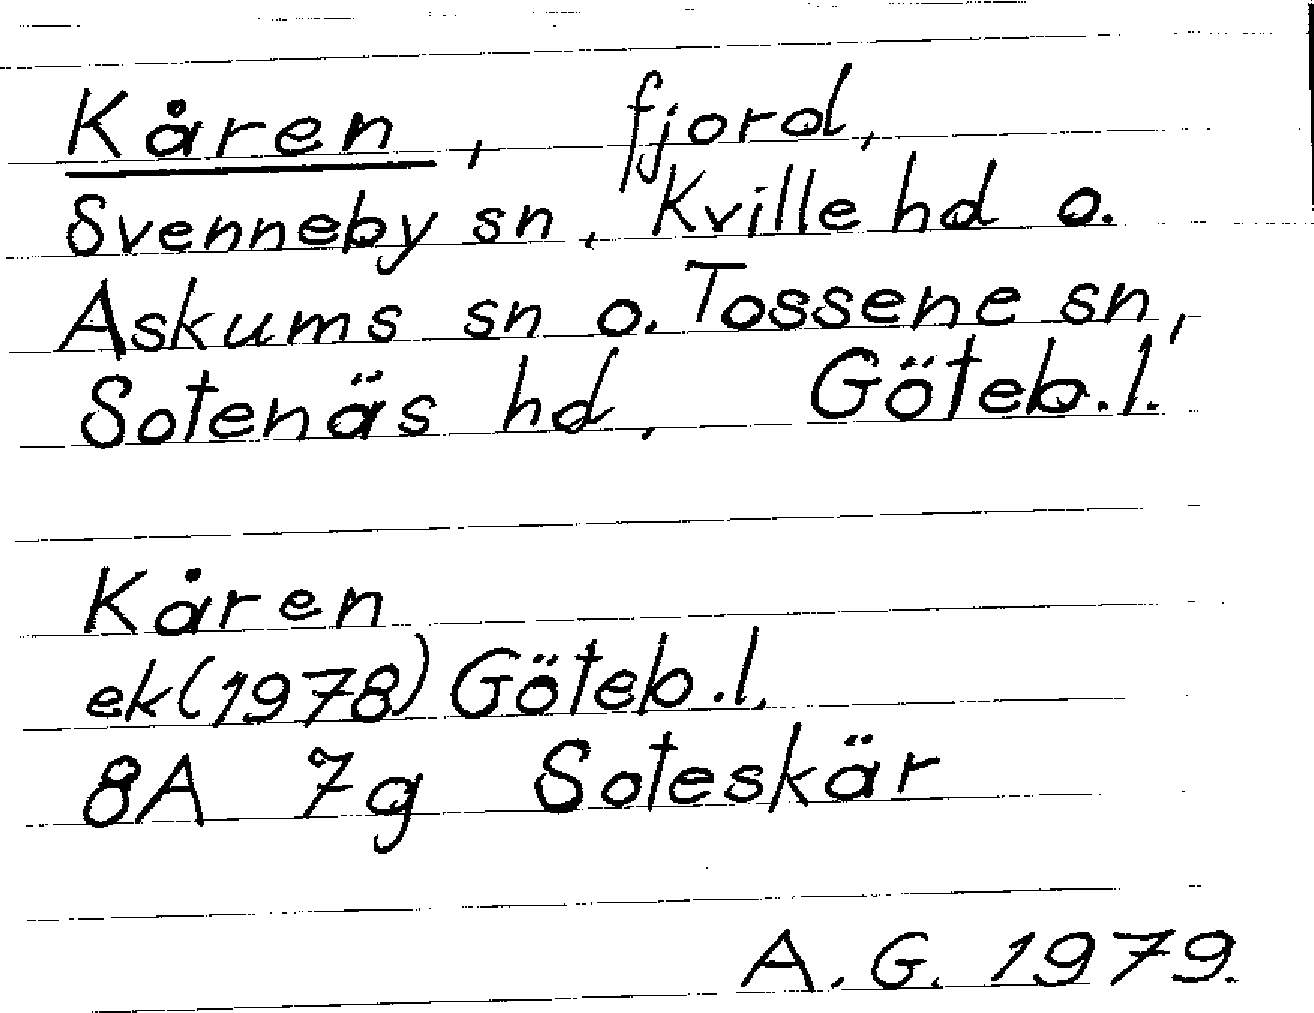 Kåren, fjord,
Svenneby sn, Kville hd o.
Askums sn o. Tossene sn,
Sotenäs hd, Göteb.l.
Kåren
ek(1978) Göteb.l.
8A 7g Soteskär
A.G. 1979.